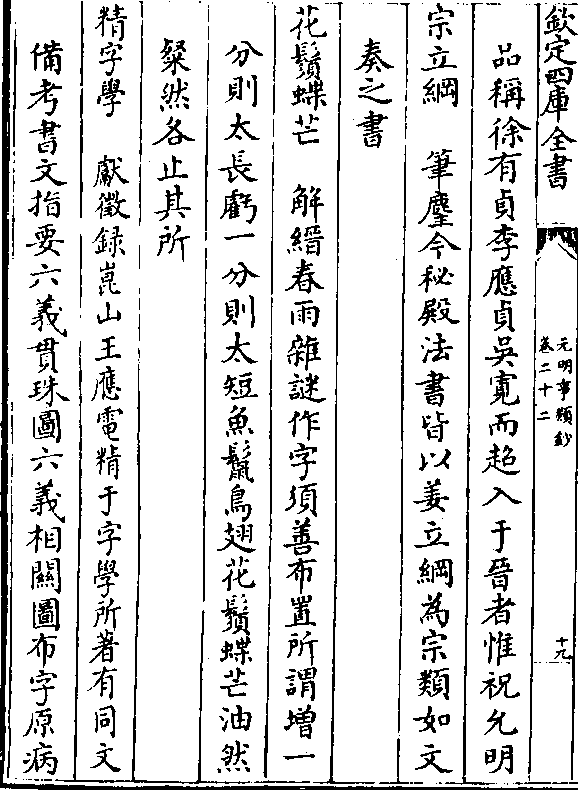 欽定四庫全書
元明事類鈔
卷二十二
十九
品稱徐有貞李應貞吳寛而超入于晉者惟祝允明
宗立綱　筆麈今秘殿法書皆以姜立綱為宗類如文
奏之書
花鬚蝶芒　解縉春雨雜謎作字須善布置所謂增一
分則太長虧一分則太短魚鬛鳥翅花鬚蝶芒油然
粲然各止其所
精字學　獻徵録崑山王應電精于字學所著有同文
備考書文指要六義貫珠圖六義相關圖布字原病